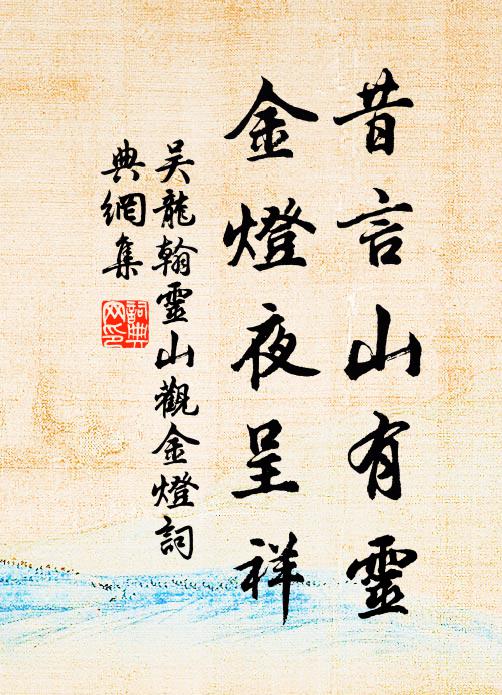 昔言山有靈
金燈夜呈祥
吳龍翰靈山觀金燈詞
典網集
詞典
网印